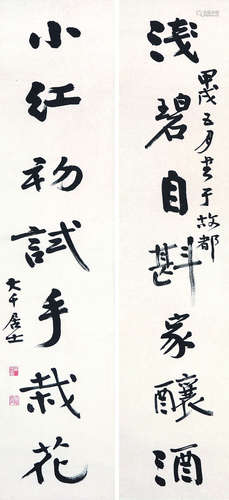 淺碧自斟家釀酒
甲戌五月書于故都
小紅初試手栽花
大千居士